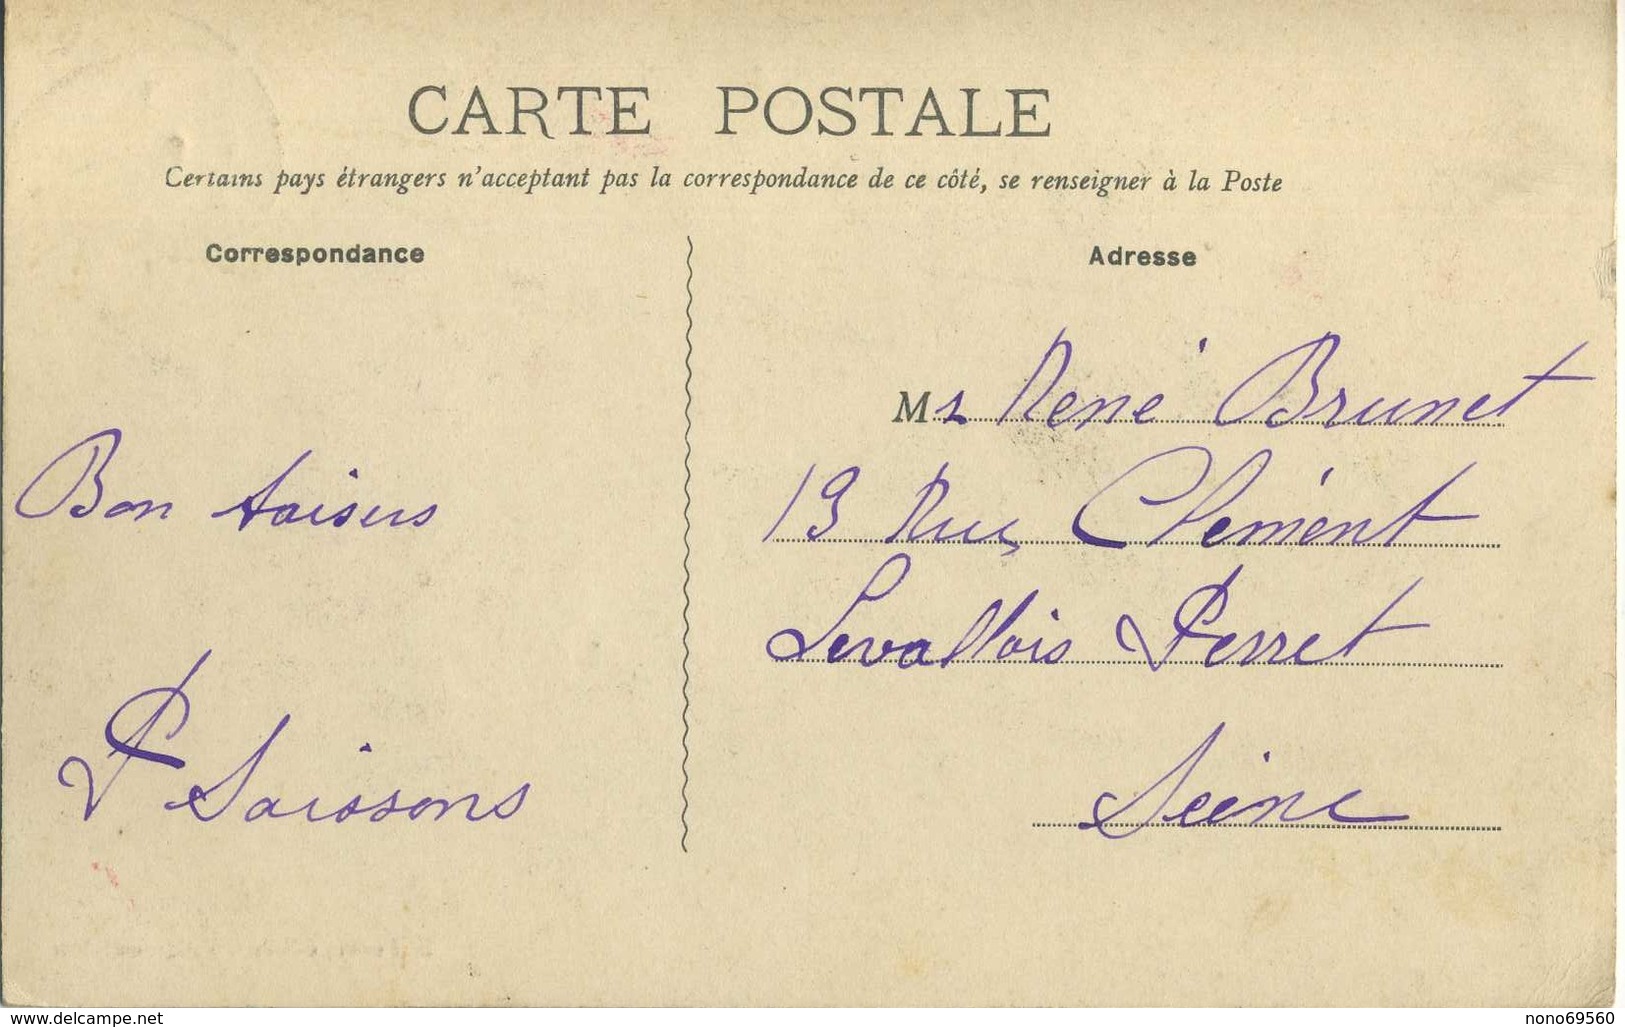 CARTE POSTALE
Certains pays étrangers n'acceptant pas la correspondance de ce côté, se renseigner à la Poste
Correspondance
Bon baisers
P Saissons
Adresse
Mr René Brunet
19 Rue Clément
Levallois Perret
Seine
www.delcampe.net
nono69560